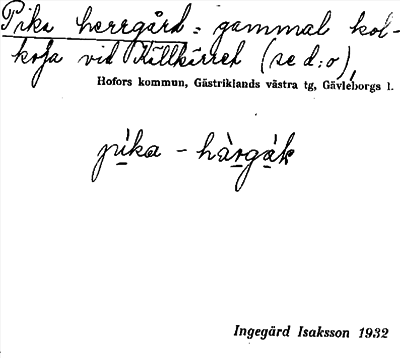 Pika herrgård = gammal kol-
koja vid Källkärret (se d:o),
Hofors kommun, Gästriklands västra tg, Gävleborgs l.
pi̱ka - hàrgåk
Ingegärd Isaksson 1932